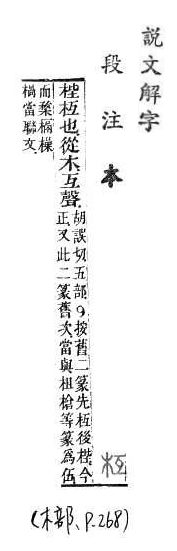 說文解字
段注本
枑
梐枑也從木互聲
胡誤切五部。按舊二篆先枑後梐今
正又此二篆舊次當與柤槍等篆爲伍
而
當聯文
(木部、P.268)